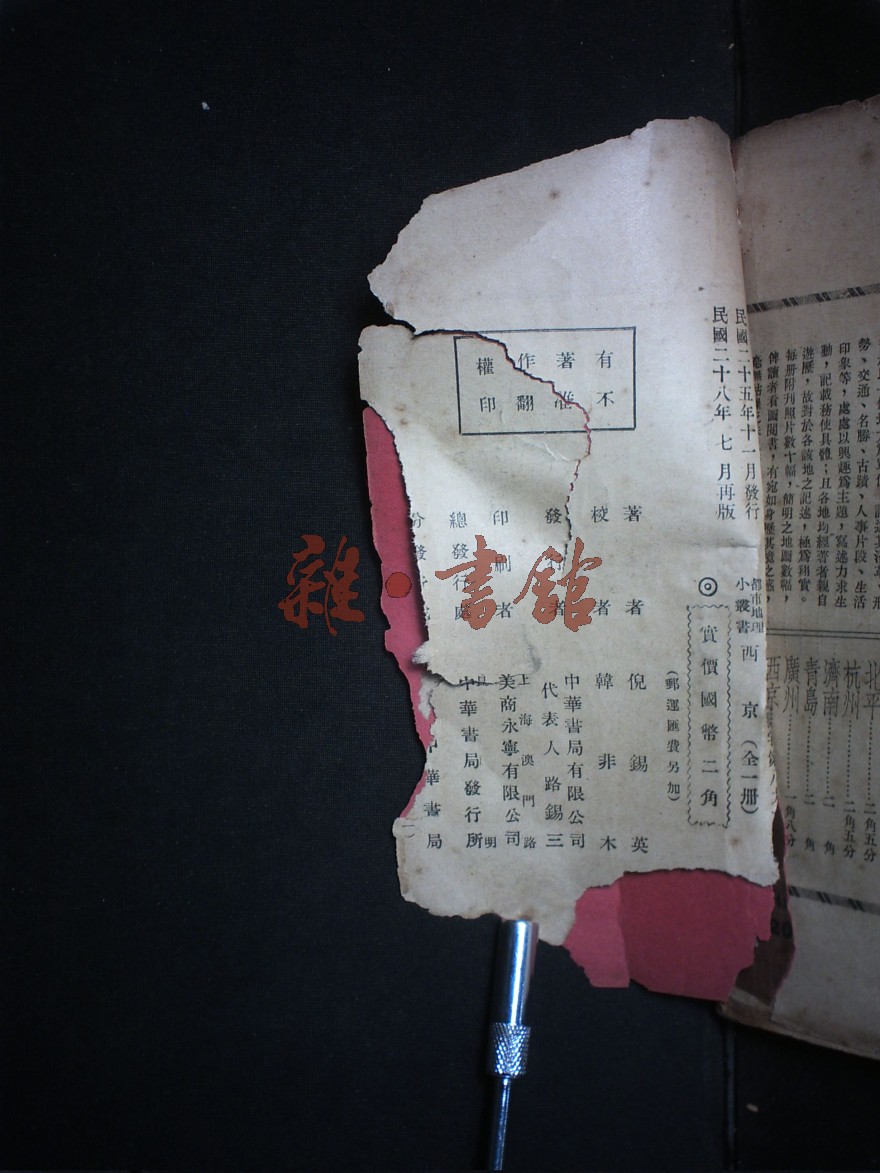 勢、交通、名勝、古蹟、人事片段、生活
印象等，處處以興趣爲主題，寫述力求生
動，記載務使具體；且各地均經著者親自
遊歷，故對於各該地之記述，極爲翔實。
每册附刊照片數十幅，簡明之地圖數幅，
俾讀者看圖閱書，有宛如身歷其境之感，
北平……二角五分
杭州……二角五分
濟南……二角
青島……二角
廣州……一角八分
西京
民國二十五年十一月發行
民國二十八年七月再版
都市地理小叢書 西京（全一册）
◎ 實價國幣二角
（郵運匯費另加）
有著作權
不准翻印
著者 倪錫英
校者 韓非木
發行者 中華書局有限公司
代表人路錫三
印刷者 上海澳門路
美商永寧有限公司
總發行處 明
中華書局發行所
分發行
中華書局
雜·書館